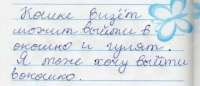 Кошке видёт
можит выйти в
окошко и гулят.
Я тоже хочу выйти
вокошко.